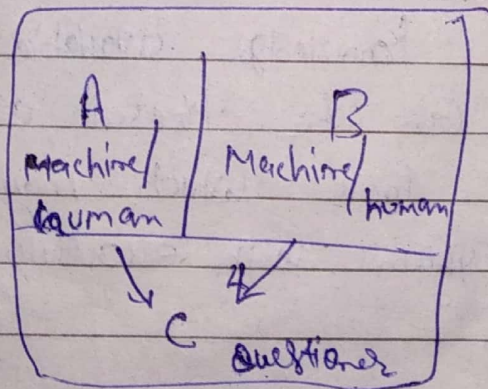 A
B
Machine/
human
Machine/
human
C
Questioner